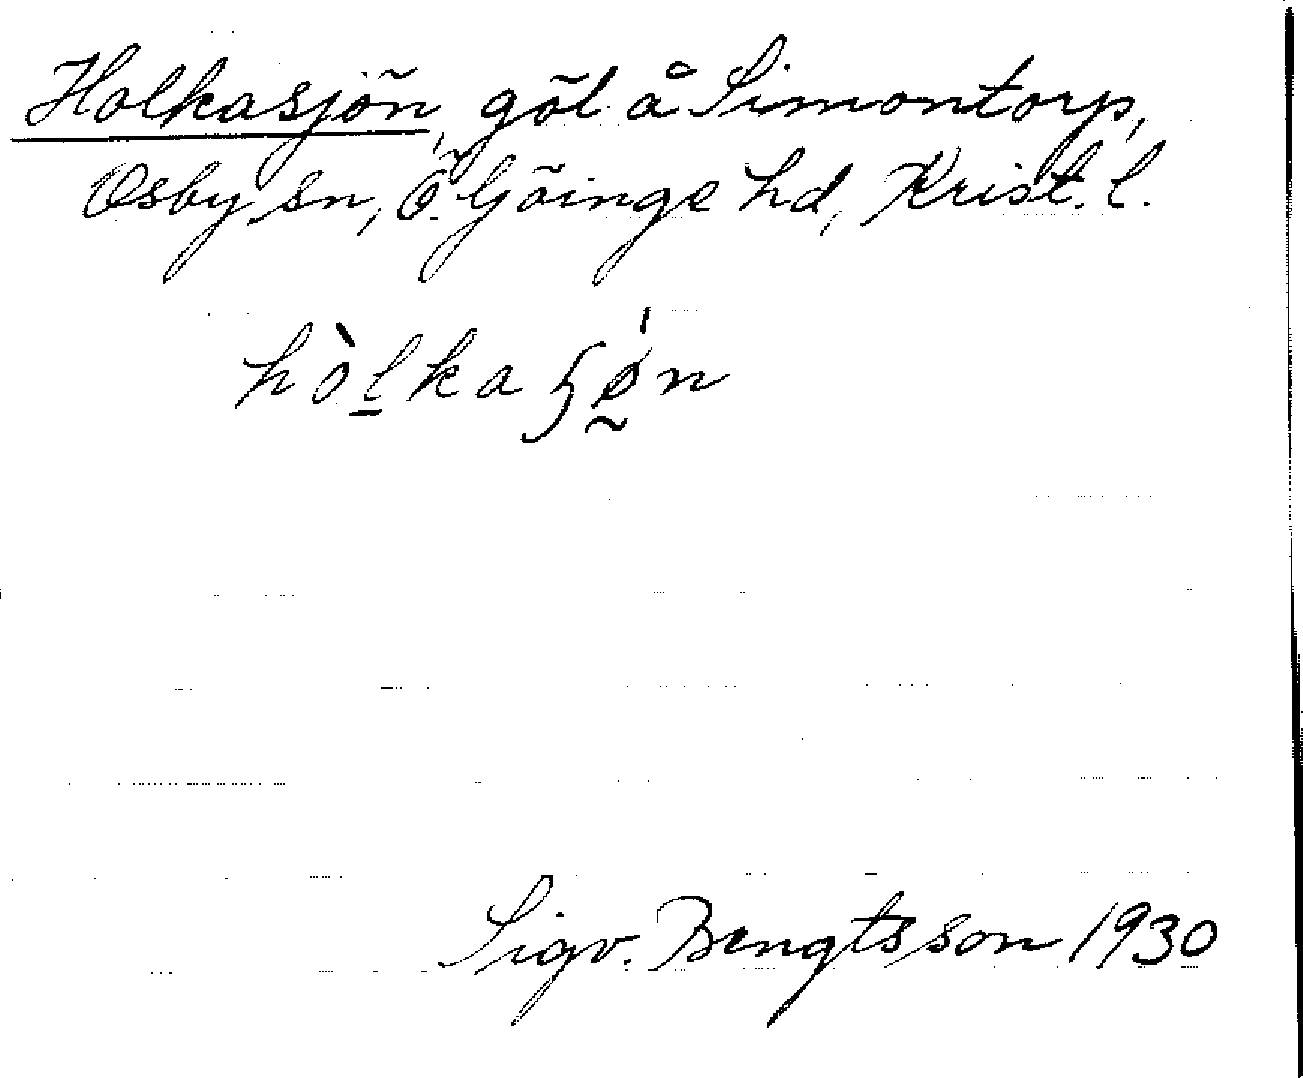 Holkasjön, göl å Simontorp,
Osby sn, Ö. Göinge hd, Krist. l.
hòl̲kaʂǿ̰n
Sigv. Bengtsson 1930